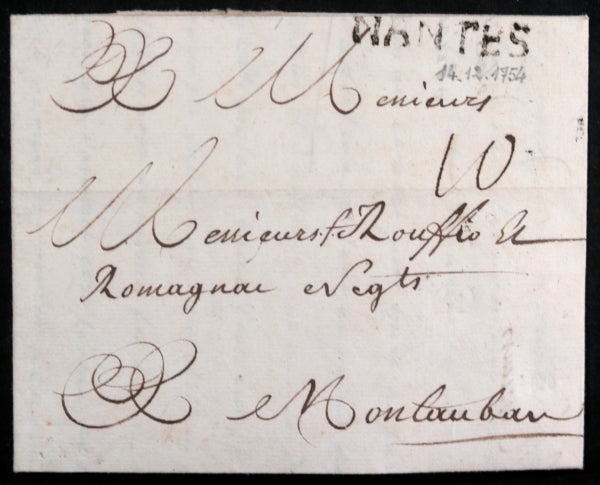 NANTES
14.12.1754
A Messieurs
10
Messieurs Rouffio Et
Romagnac Negts
A Montauban